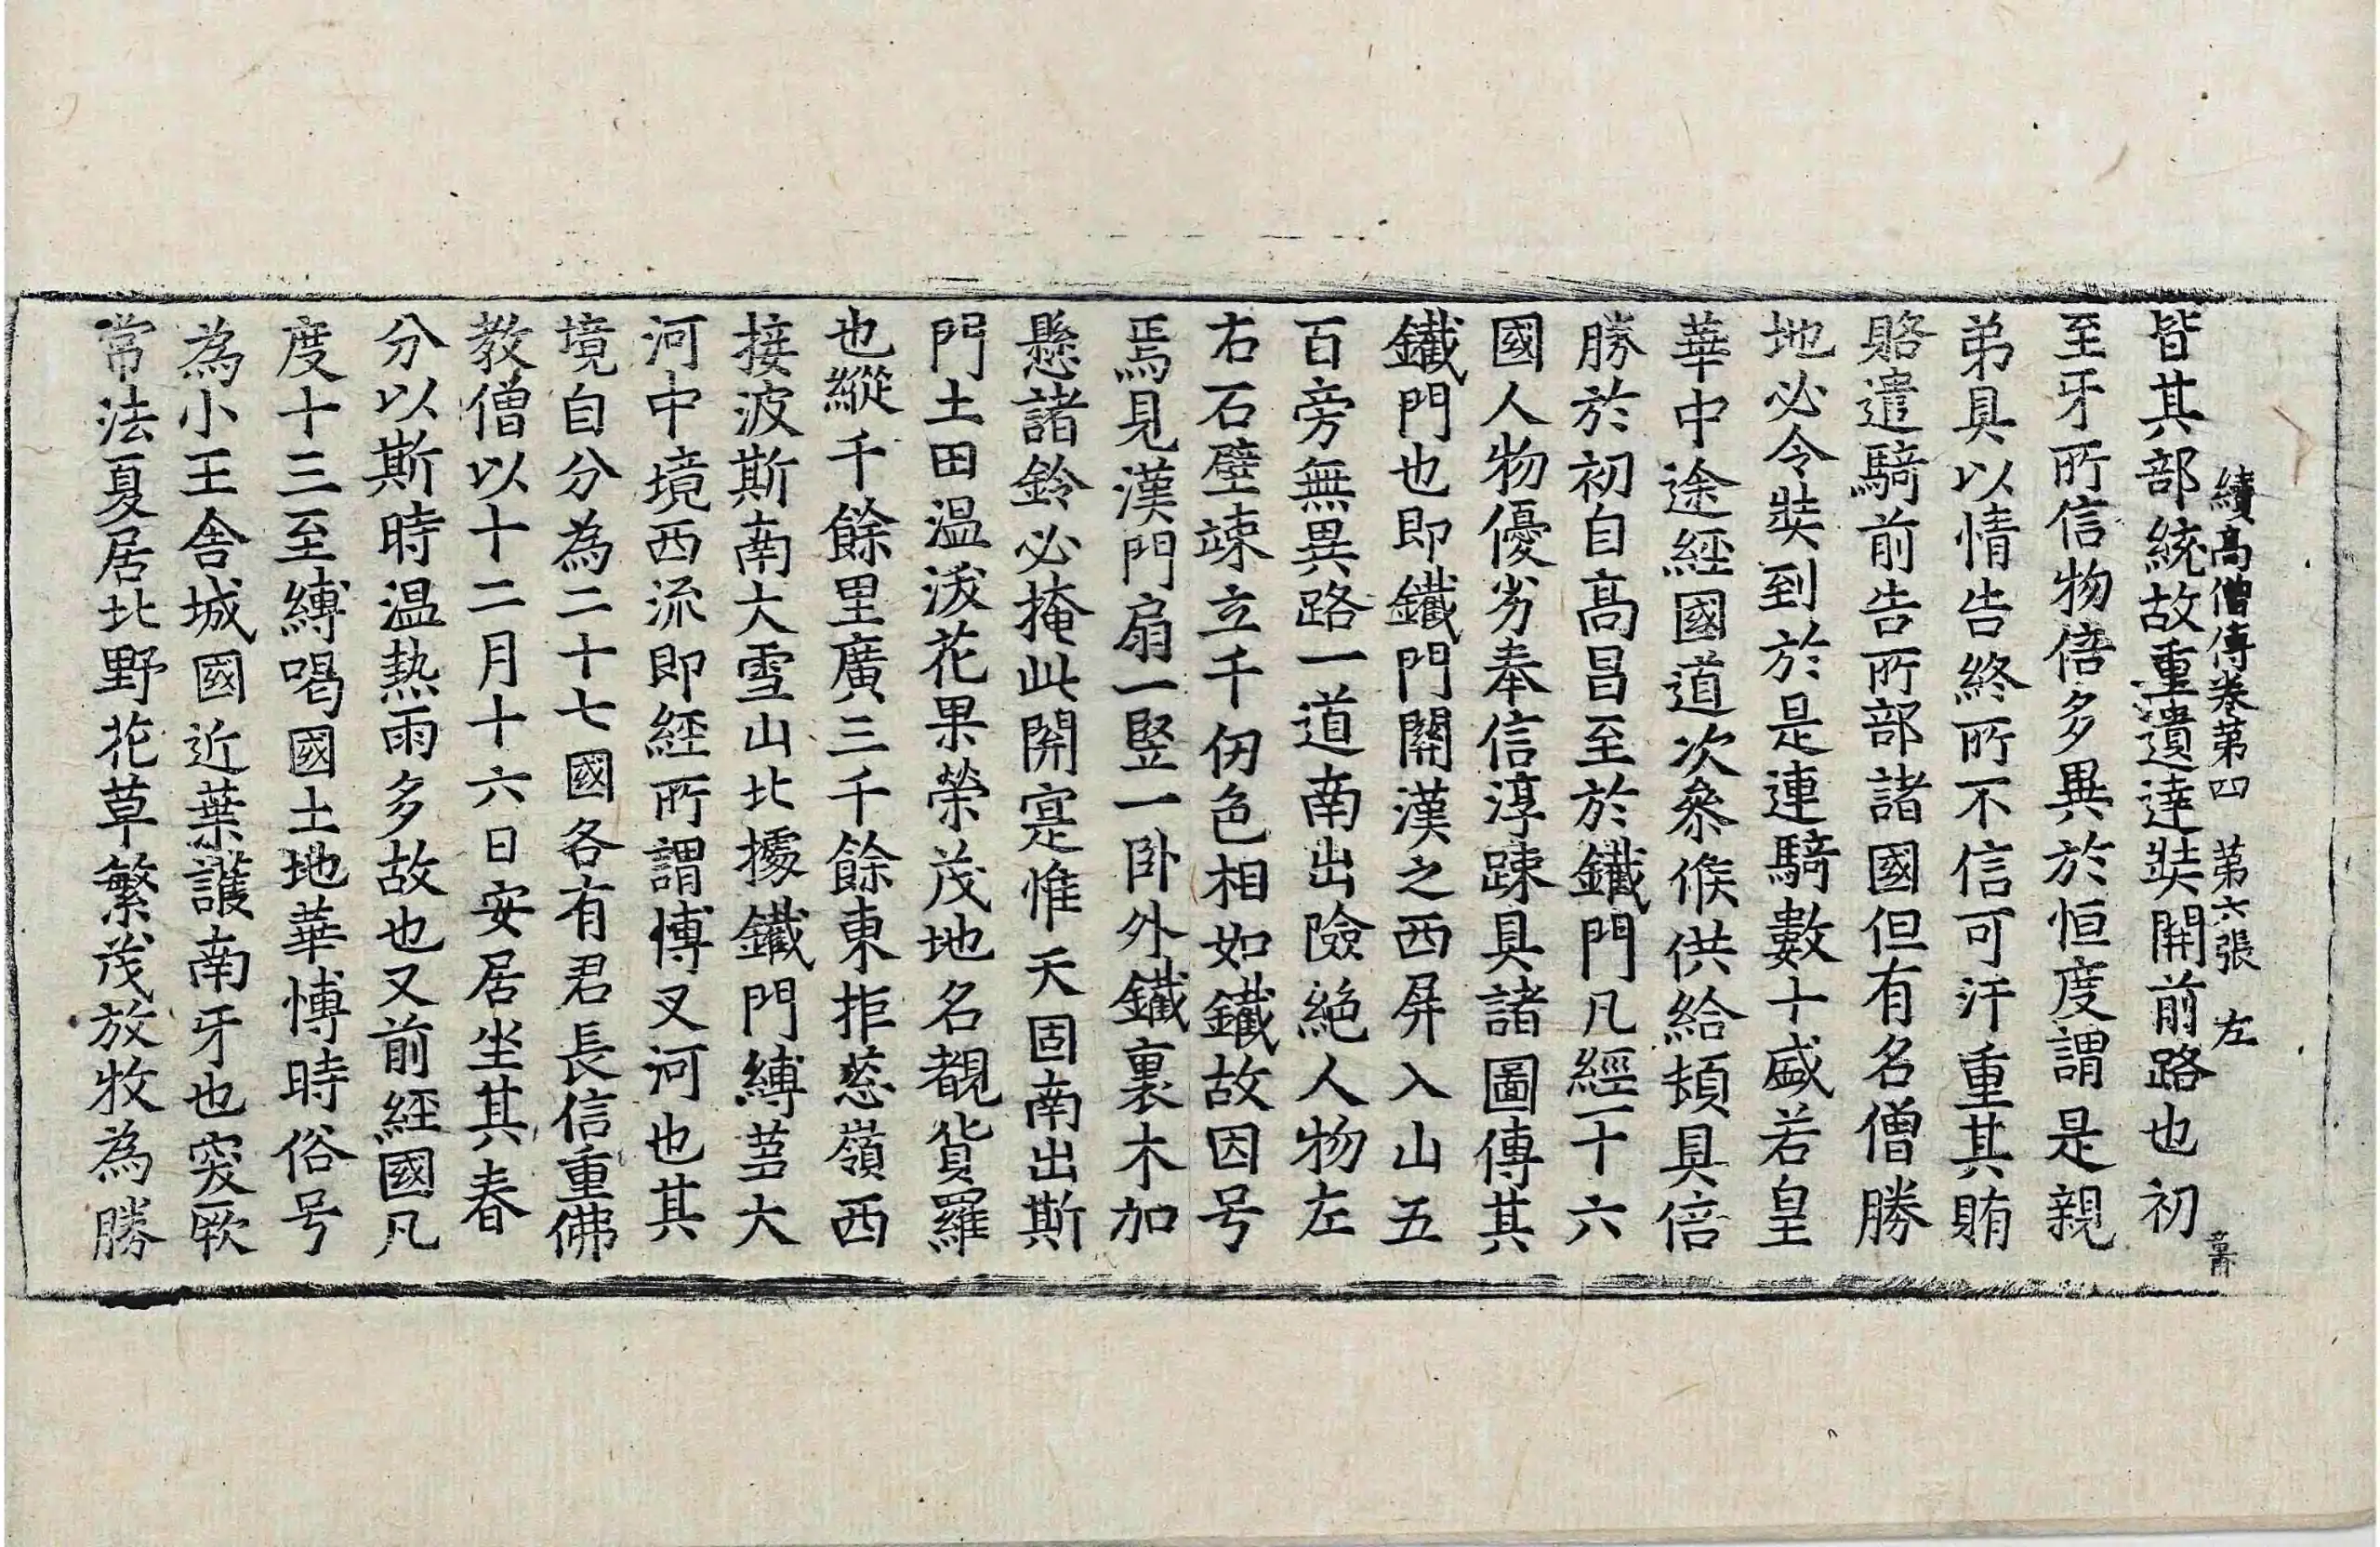 續高僧傳卷第四 第六張 左
皆其部統故重遺達奘開前路也初
至牙所信物倍多異於恒度謂是親
弟具以情告終所不信可汗重其賄
賂遣騎前告所部諸國但有名僧勝
地必令奘到於是連騎數十盛若皇
華中途經國道次叅候供給頓具倍
勝於初自高昌至於鐵門凡經一十六
國人物優劣奉信淳踈具諸圖傳其
鐵門也即鐵門關漢之西屏入山五
百旁無異路一道南出險絕人物左
右石壁竦立千仞色相如鐵故因号
焉見漢門扇一竪一卧外鐵裏木加
懸諸鈴必掩此關寔惟天固南出斯
門土田温沃花果榮茂地名覩貨羅
也縱千餘里廣三千餘東拒葱嶺西
接波斯南大雪山北據鐵門縛芻大
河中境西流即經所謂博叉河也其
境自分為二十七國各有君長信重佛
教僧以十二月十六日安居坐其春
分以斯時温熱雨多故也又前經國凡
度十三至縛喝國土地華博時俗号
為小王舍城國近葉護南牙也突厥
常法夏居北野花草繁茂放牧為勝